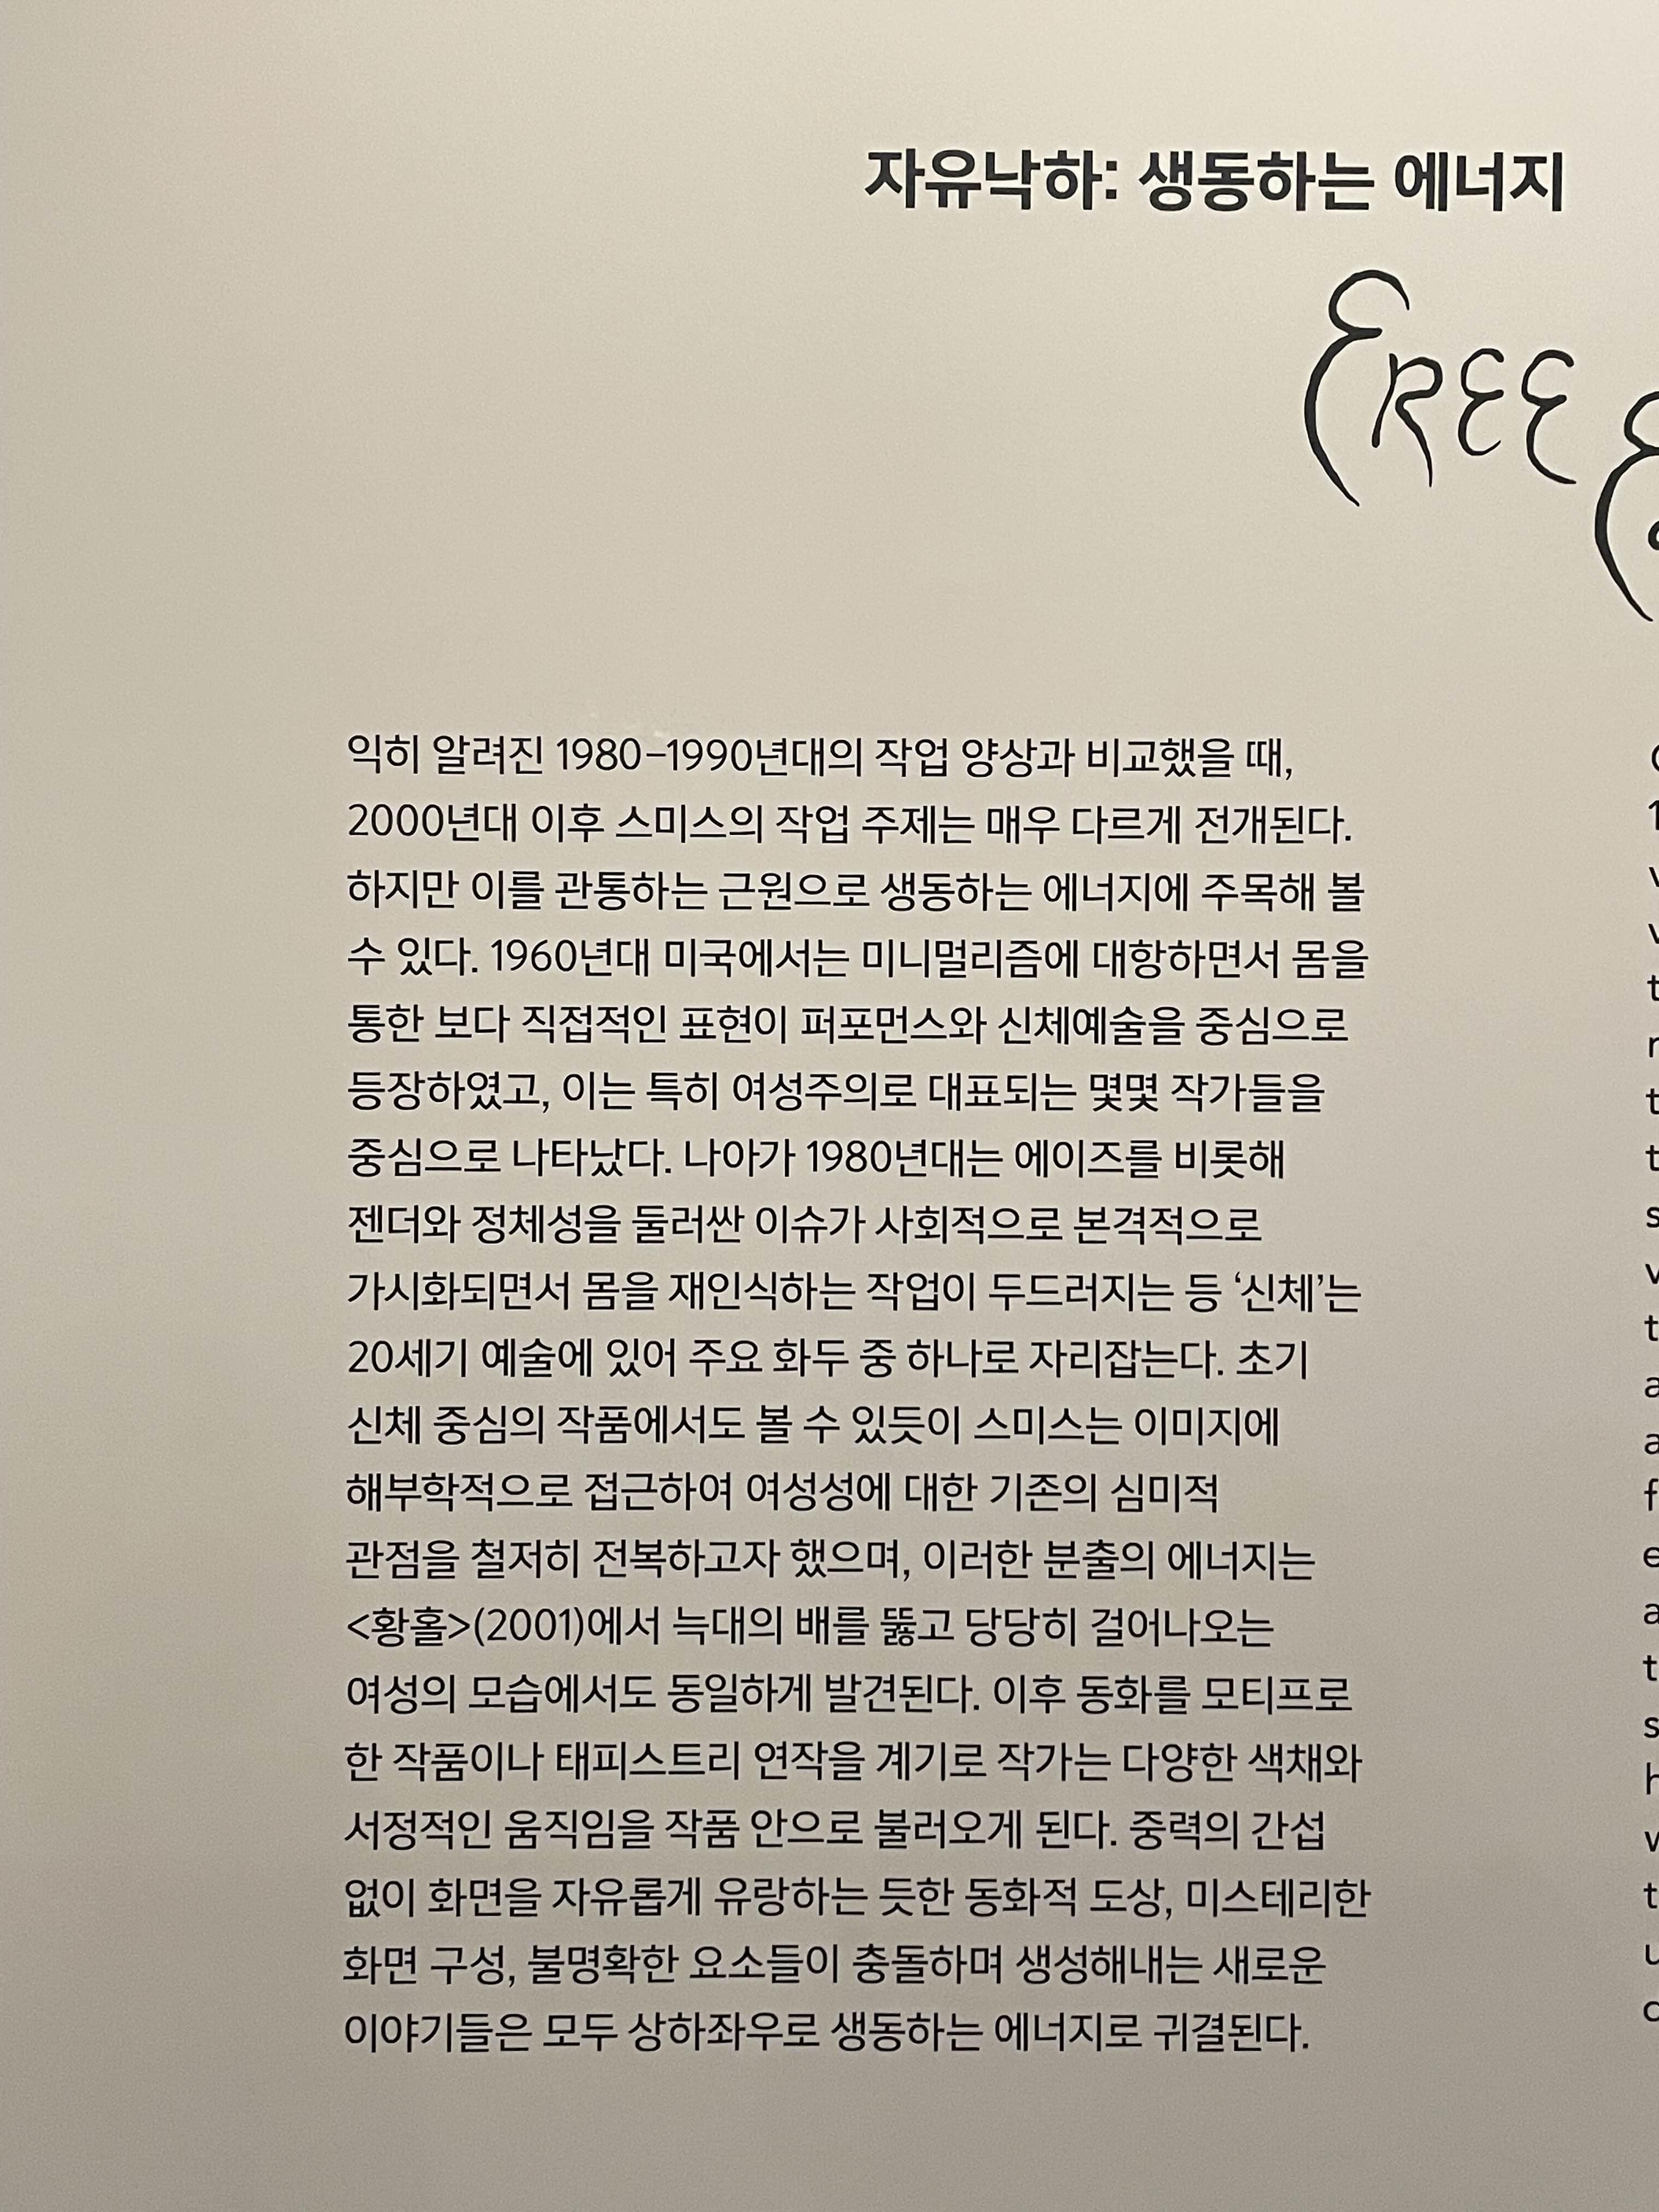 자유낙하: 생동하는 에너지
FREE
익히 알려진 1980–1990년대의 작업 양상과 비교했을 때,
2000년대 이후 스미스의 작업 주제는 매우 다르게 전개된다.
하지만 이를 관통하는 근원으로 생동하는 에너지에 주목해 볼
수 있다. 1960년대 미국에서는 미니멀리즘에 대항하면서 몸을
통한 보다 직접적인 표현이 퍼포먼스와 신체예술을 중심으로
등장하였고, 이는 특히 여성주의로 대표되는 몇몇 작가들을
중심으로 나타났다. 나아가 1980년대는 에이즈를 비롯해
젠더와 정체성을 둘러싼 이슈가 사회적으로 본격적으로
가시화되면서 몸을 재인식하는 작업이 두드러지는 등 ‘신체’는
20세기 예술에 있어 주요 화두 중 하나로 자리잡는다. 초기
신체 중심의 작품에서도 볼 수 있듯이 스미스는 이미지에
해부학적으로 접근하여 여성성에 대한 기존의 심미적
관점을 철저히 전복하고자 했으며, 이러한 분출의 에너지는
<황홀>(2001)에서 늑대의 배를 뚫고 당당히 걸어나오는
여성의 모습에서도 동일하게 발견된다. 이후 동화를 모티프로
한 작품이나 태피스트리 연작을 계기로 작가는 다양한 색채와
서정적인 움직임을 작품 안으로 불러오게 된다. 중력의 간섭
없이 화면을 자유롭게 유랑하는 듯한 동화적 도상, 미스테리한
화면 구성, 불명확한 요소들이 충돌하며 생성해내는 새로운
이야기들은 모두 상하좌우로 생동하는 에너지로 귀결된다.